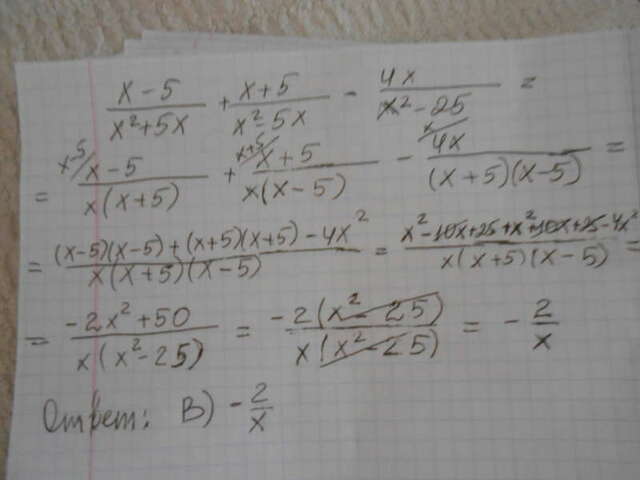 x-5/x²+5x + x+5/x²-5x - 4x/x²-25 =
= x-5/ x-5/x(x+5) + x+5/ x+5/x(x-5) - x/ 4x/(x+5)(x-5) =
= (x-5)(x-5)+(x+5)(x+5)-4x²/x(x+5)(x-5) = x²-10x+25+x²+10x+25-4x²/x(x+5)(x-5) =
= -2x²+50/x(x²-25) = -2(x²-25)/x(x²-25) = -2/x
Ответ: В) -2/x